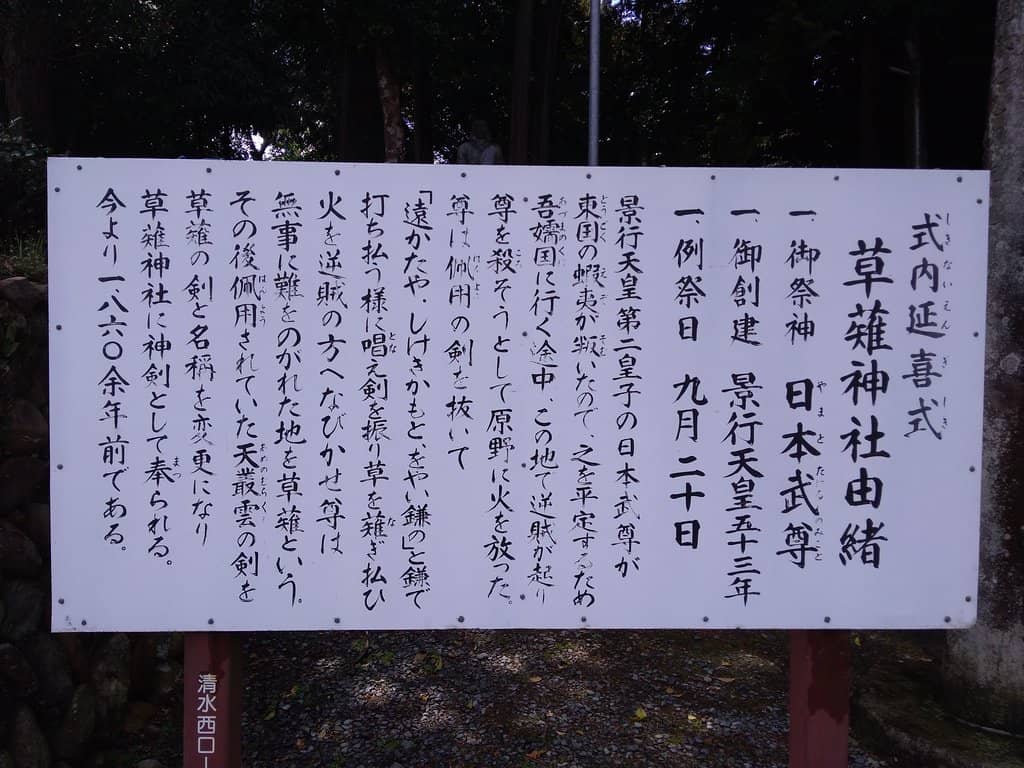 式内延喜式
草薙神社由緒
一、御祭神 日本武尊
一、御創建 景行天皇五十三年
一、例祭日 九月二十日
景行天皇第二皇子の日本武尊が
東国の蝦夷が叛いたので、之を平定するため
吾嬬国に行く途中、この地で逆賊が起り
尊を殺そうとして原野に火を放った。
尊は佩用の剣を抜いて
「遠かたや、しけきかもと、をやい鎌の」と鎌で
打ち払う様に唱え剣を振り草を薙ぎ払ひ
火を逆賊の方へなびかせ尊は
無事に難をのがれた地を草薙という。
その後佩用されていた天叢雲の剣を
草薙の剣と名称を変更になり
草薙神社に神剣として奉られる。
今より一、八六〇余年前である。
清水西ロー